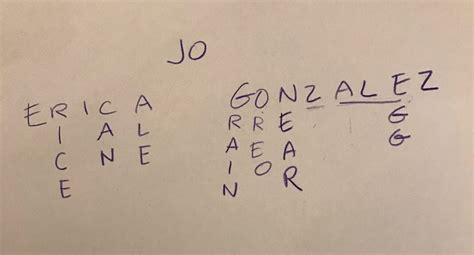 JO
ERICA GONZALEZ
I A L R R E G
C N E A E A G
E I O R
N